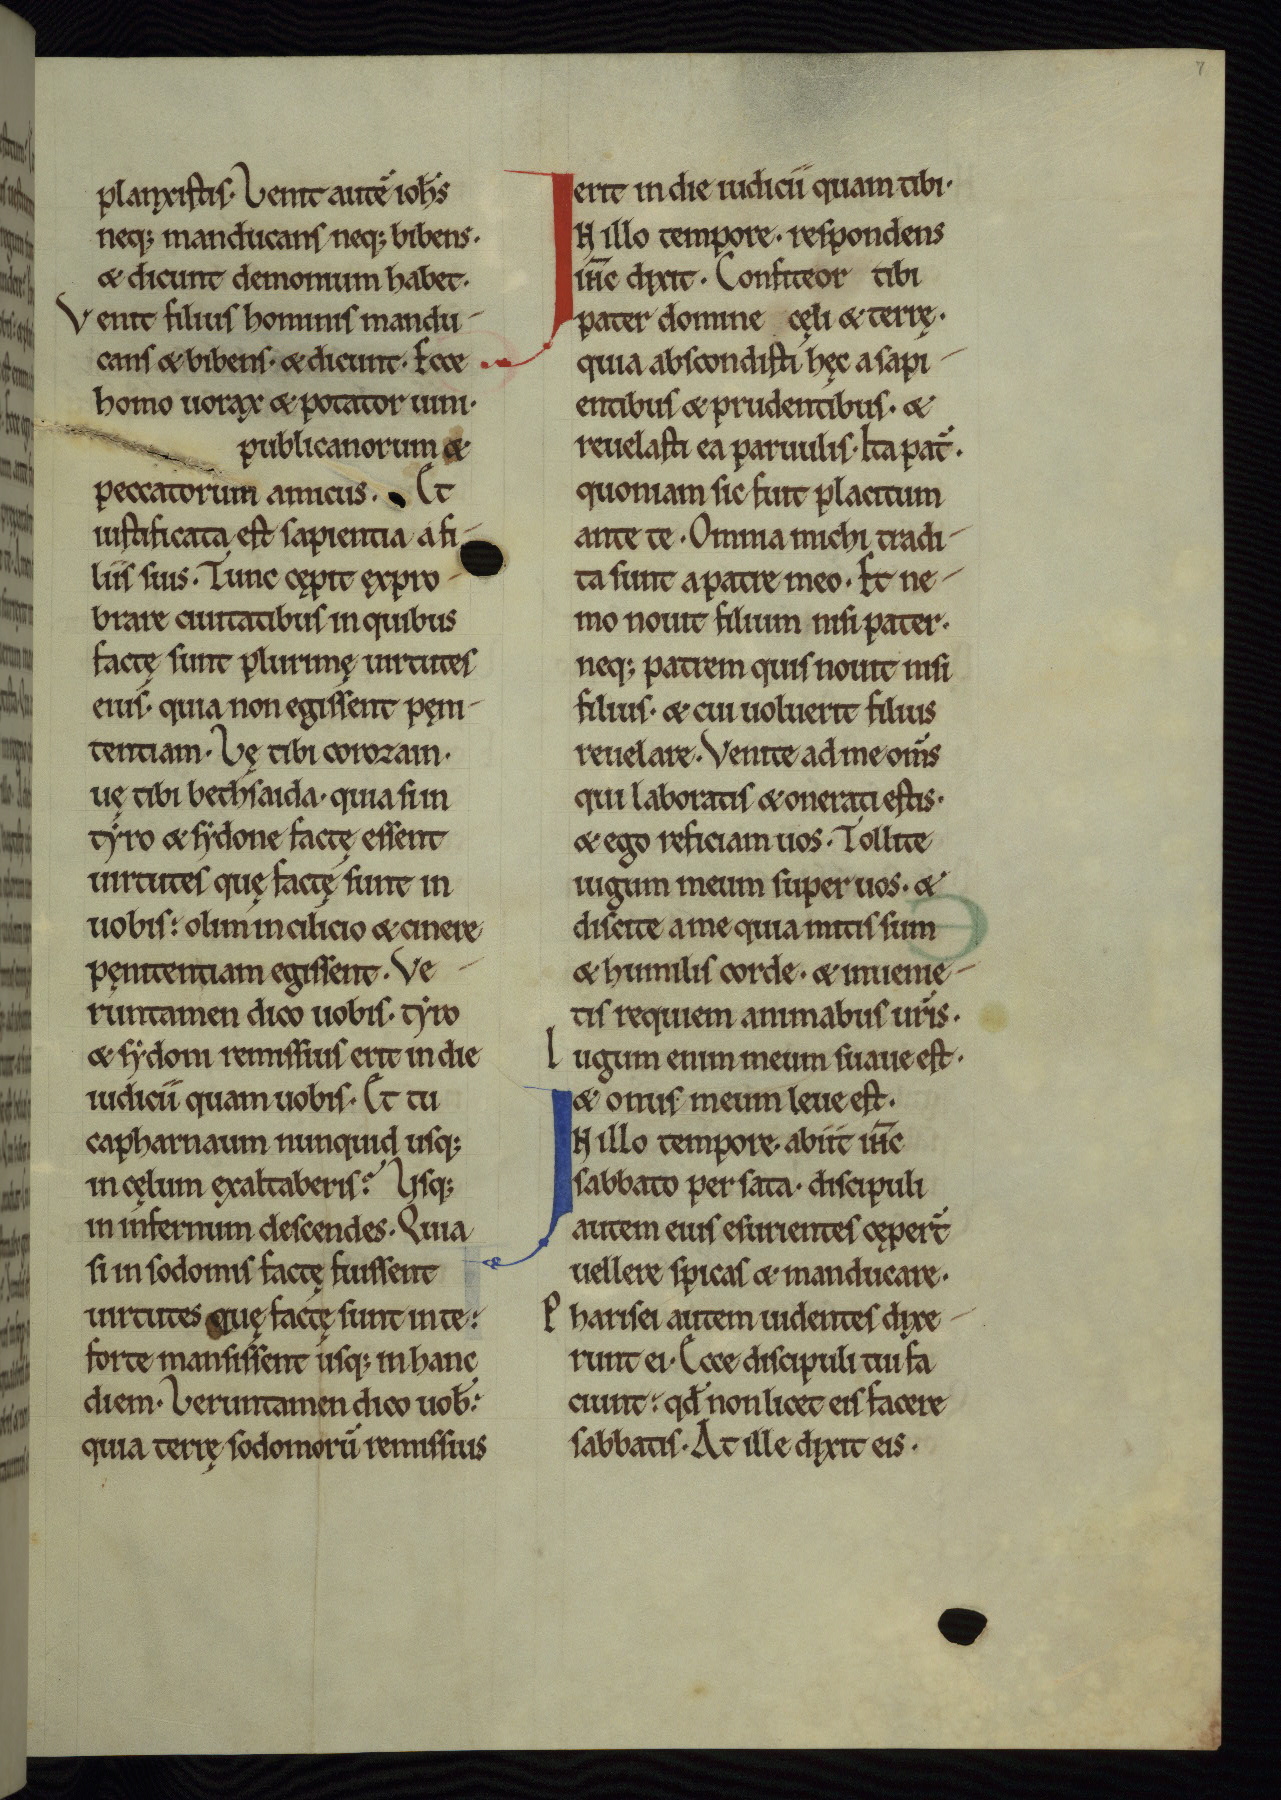 7
planxistis. Venit autē ioħs
neq; manducans neq; bibens.
& dicunt demonium habet.
Venit filius hominis mandu-
cans & bibens. & dicunt. Ecce
homo uorax & potator uini.
publicanorum &
peccatorum amicus. Et
iustificata est sapientia a fi-
liis suis. Tunc cępit ęxpro-
brare ciuitatibus in quibus
factę sunt plurimę uirtutes
eius. quia non egissent pęni-
tentiam. Vę tibi corozain.
uę tibi bethsaida. quia si in
tyro & sydone factę essent
uirtutes quę factę sunt in
uobis: olim in cilicio & cinere
pęnitentiam egissent. Ve-
runtamen dico uobis. tyro
& sydoni remissius erit in die
iudicii quam uobis. Et tu
capharnaum nunquid usq;
in cęlum exaltaberis? Usq;
in infernum descendes. Quia
si in sodomis factę fuissent
uirtutes quę factę sunt in te:
forte mansissent usq; in hanc
diem. Veruntamen dico uob̄:
quia terrę sodomorū remissius
erit in die iudicii quam tibi.
IN illo tempore. respondens
iħc dixit. Confiteor tibi
pater domine cęli & terrę.
quia abscondisti hęc a sapi-
entibus & prudentibus. &
reuelasti ea paruulis. Ita pat̄.
quoniam sic fuit placitum
ante te. Omnia michi tradi-
ta sunt a patre meo. Et ne-
mo nouit filium nisi pater.
neq; patrem quis nouit nisi
filius. & cui uoluerit filius
reuelare. Venite ad me om̄s
qui laboratis & onerati estis.
& ego reficiam uos. Tollite
iugum meum super uos. &
discite a me quia mitis sum
& humilis corde. & inuenie-
tis requiem animabus ur̄is.
Iugum enim meum suaue est.
& onus meum leue est.
IN illo tempore. abiit iħc
sabbato per sata. discipuli
autem eius esurientes cępert̄
uellere spicas & manducare.
Pharisei autem uidentes dixe-
runt ei. Ecce discipuli tui fa
ciunt: qđ non licet eis facere
sabbatis. At ille dixit eis.